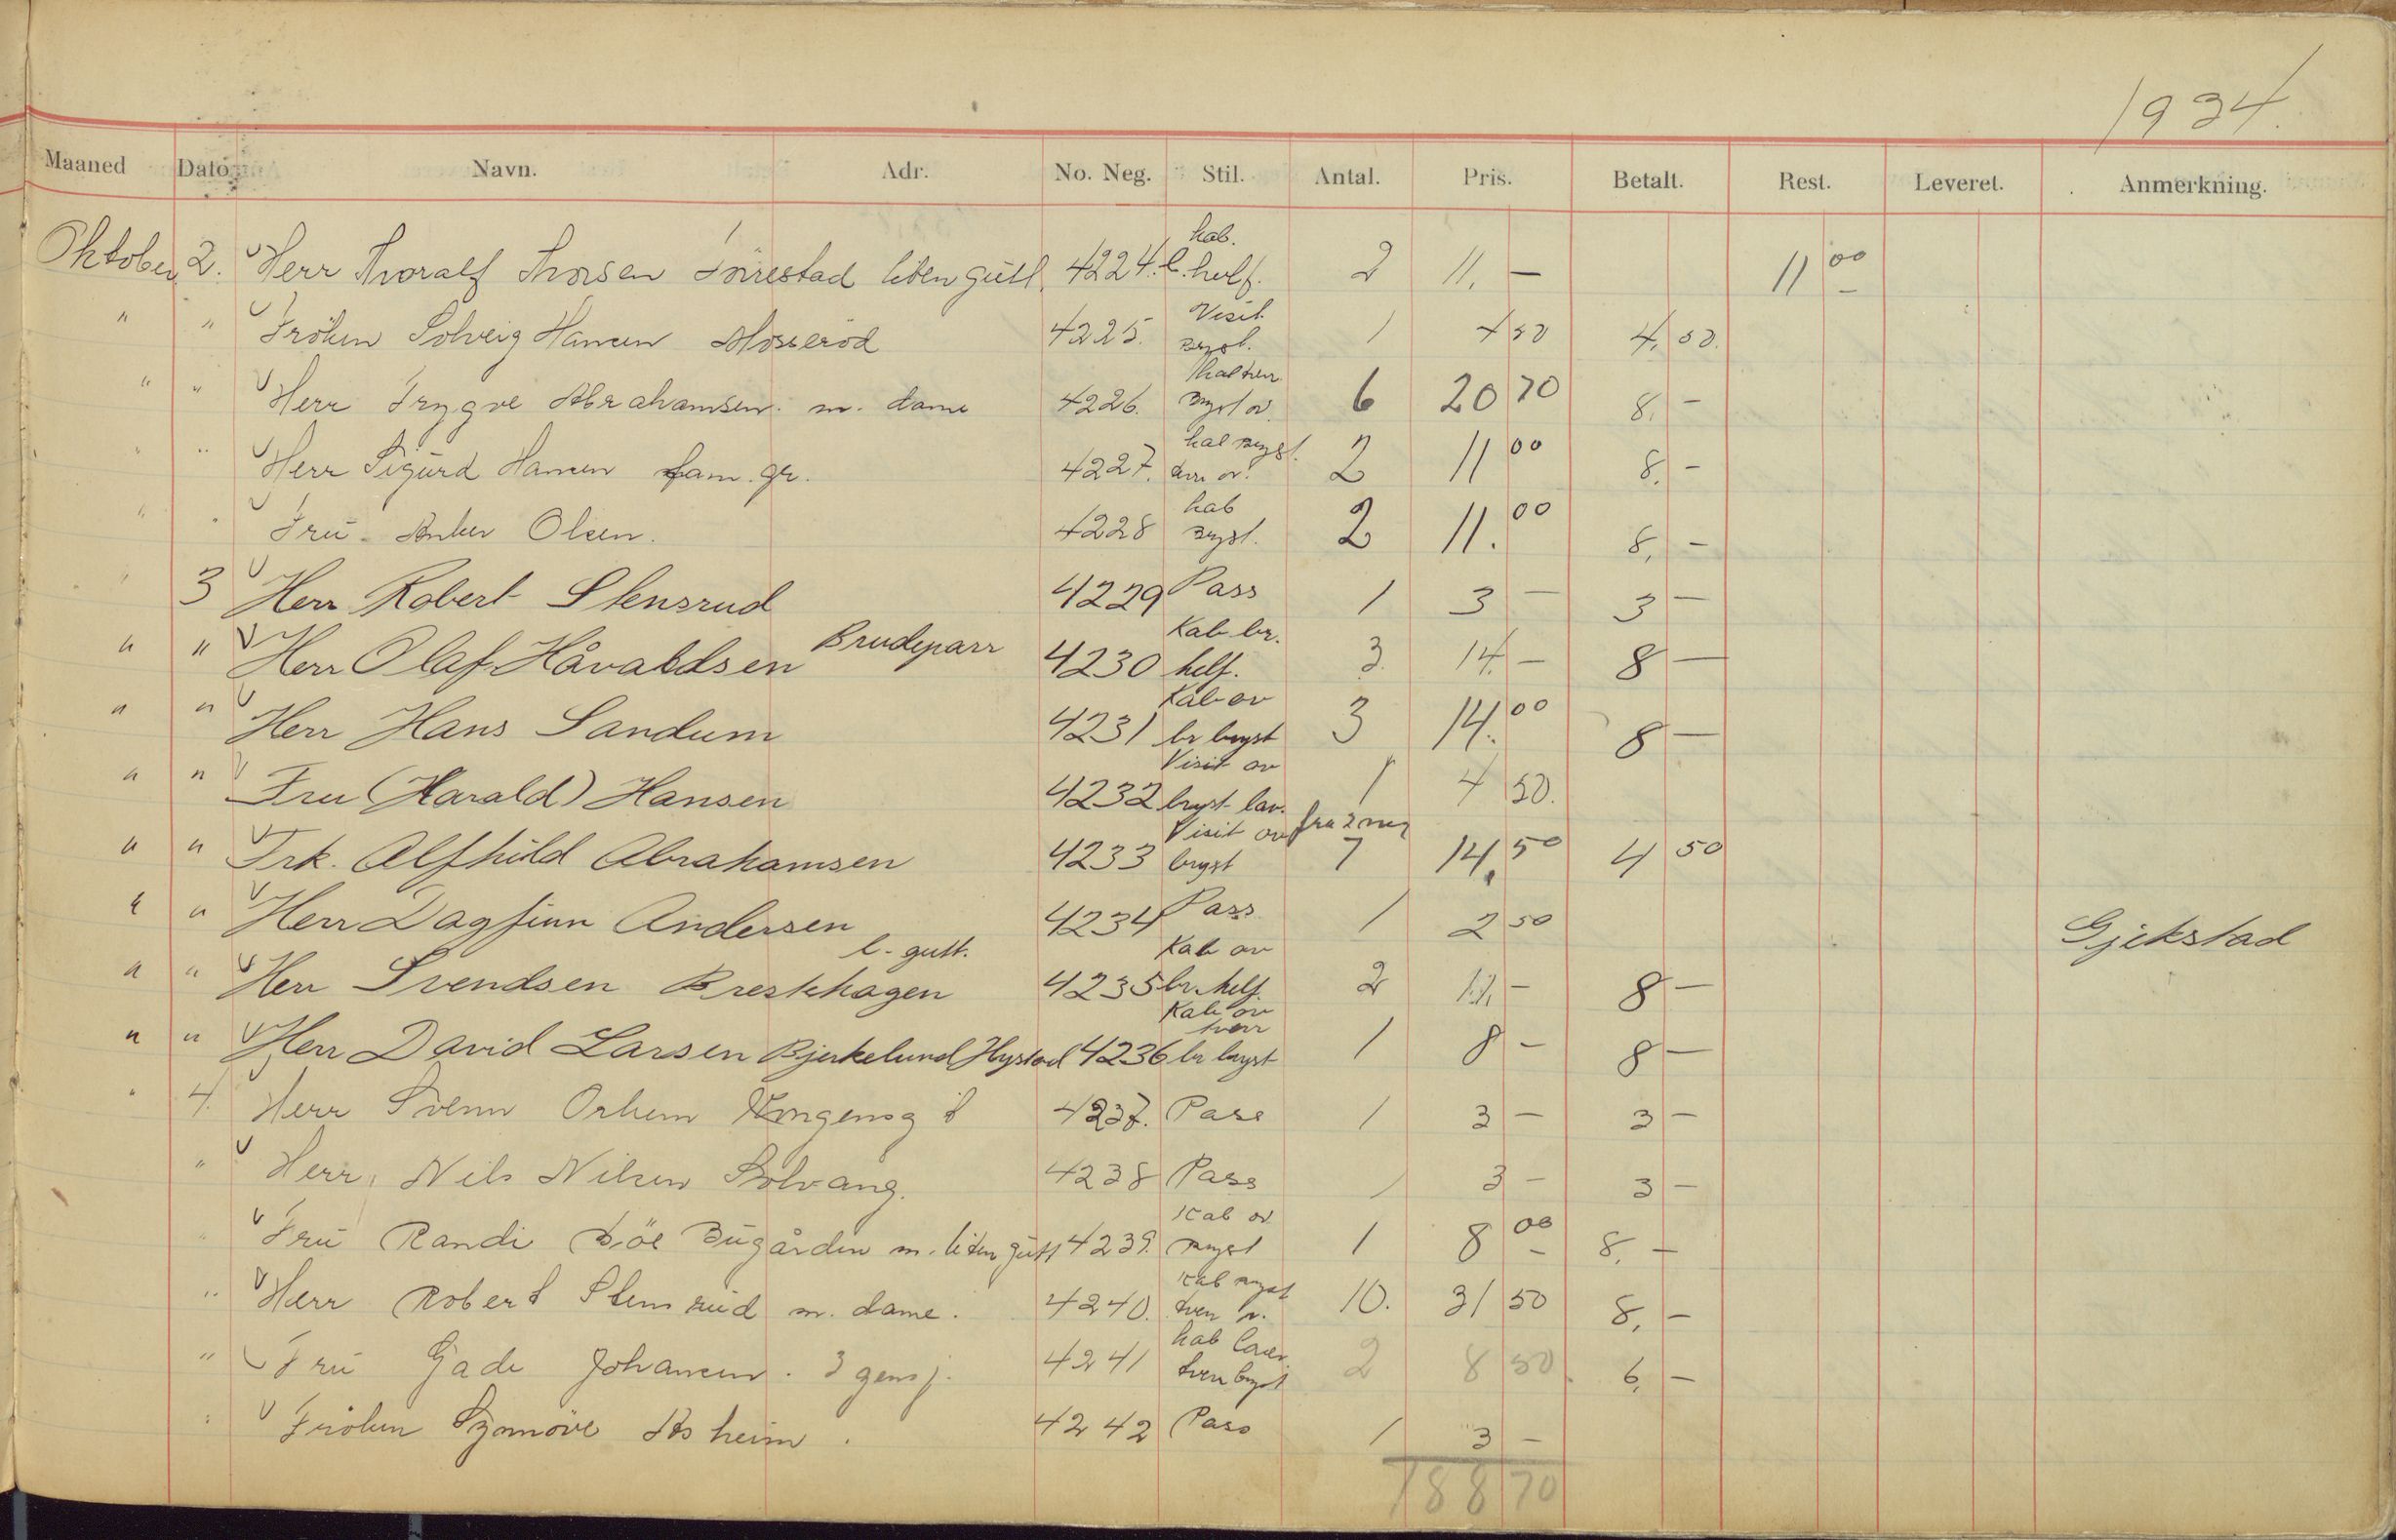 1934.
Maaned Dato Navn. Adr. No. Neg. Stil. Antal. Pris. Betalt. Rest. Leveret. Anmerkning.
Oktober 2. Herr Thoralf Thorsen liten gutt. 4224. kab. l. helf. 2 11. — 11 00
" " Fröken Solveig Hansen Mosseröd 4225. Visit bryst. 1 4 50 4, 50.
" " Herr Trygve Abrahamsen. m. dame 4226. bryst ov 6 20 70 8. –
" " Herr Sigurd Hansen fam. gr. 4227. kab bryst. tver ov. 2 11 00 8. –
" " Fru Olsen. 4228 kab bryst. 2 11. 00 8, –
" 3 Herr Robert Stensrud 4229 Pass 1 3 — 3 —
" " Herr Olaf Håvaldsen Brudeparr 4230 Kab br. helf. 3. 14. — 8 —
" " Herr Hans Sandum 4231 Kab ov br bryst 3 14. 00 8 —
" " Fru (Harald) Hansen 4232 Visit ov bryst lav. 1 4 50.
" " Frk. Alfhild Abrahamsen 4233 Visit ov bryst fra 2 neg 7 14, 50 4 50
" " Herr Dagfinn Andersen 4234 Pass 1 2 50 Gjekstad
" " Herr Svendsen Breskhagen l. gutt. 4235 Kab ov br. helf. 2 11, – 8 —
" " Herr David Larsen Bjerkelund Hystad 4236 Kab ov tverr br bryst 1 8 – 8 —
" 4. Herr Svenn Orhem 4237. Pass 1 3 — 3 —
" Herr Nils Nilsen Solvang. 4238 Pass 1 3 – 3 –
" Fru Randi Böe Bugården m. liten gutt 4239. Kab ov bryst 1 8 00 8. –
" Herr Robert Stensrud m. dame. 4240. Kab bryst tver ov. 10. 31 50 8, –
" Fru Gade Johansen. 3 gensj. 4241 kab laver. tver bryst 2 8 50 6, –
" Fröken Synnöve Asheim. 4242 Pass 1 3 –
188 70